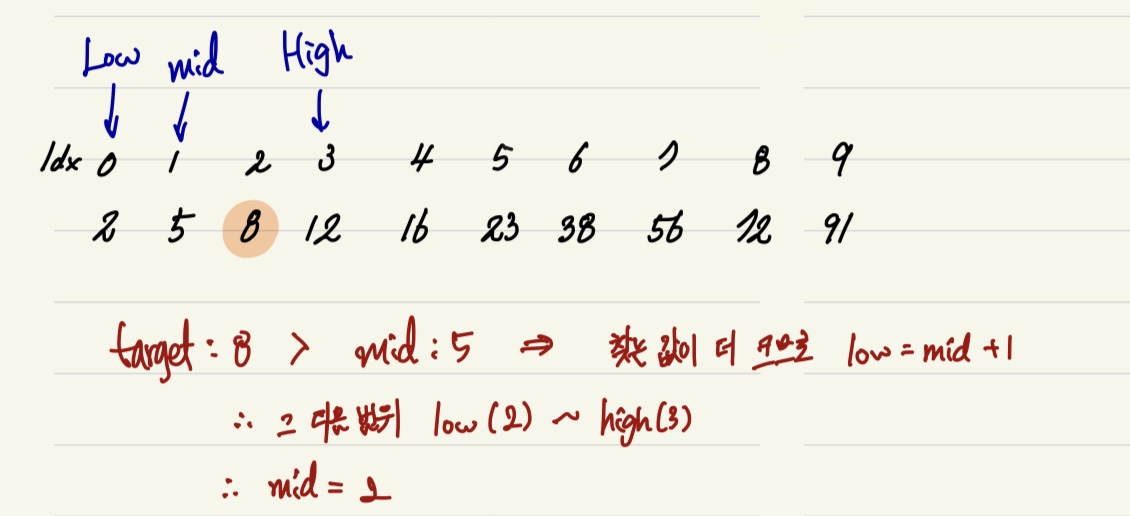 Low mid High
Idx 0 1 2 3 4 5 6 7 8 9
2 5 8 12 16 23 38 56 72 91
target : 8 > mid : 5 ⇒ 찾는 값이 더 크므로 low = mid +1
∴ 그 다음 범위 low (2) ~ high (3)
∴ mid = 2